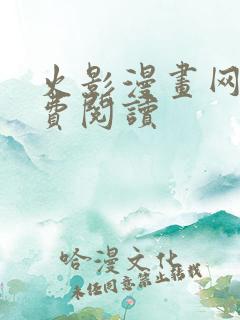 火影漫畫网
費閱讀
哈漫文化
未经同意禁止转载